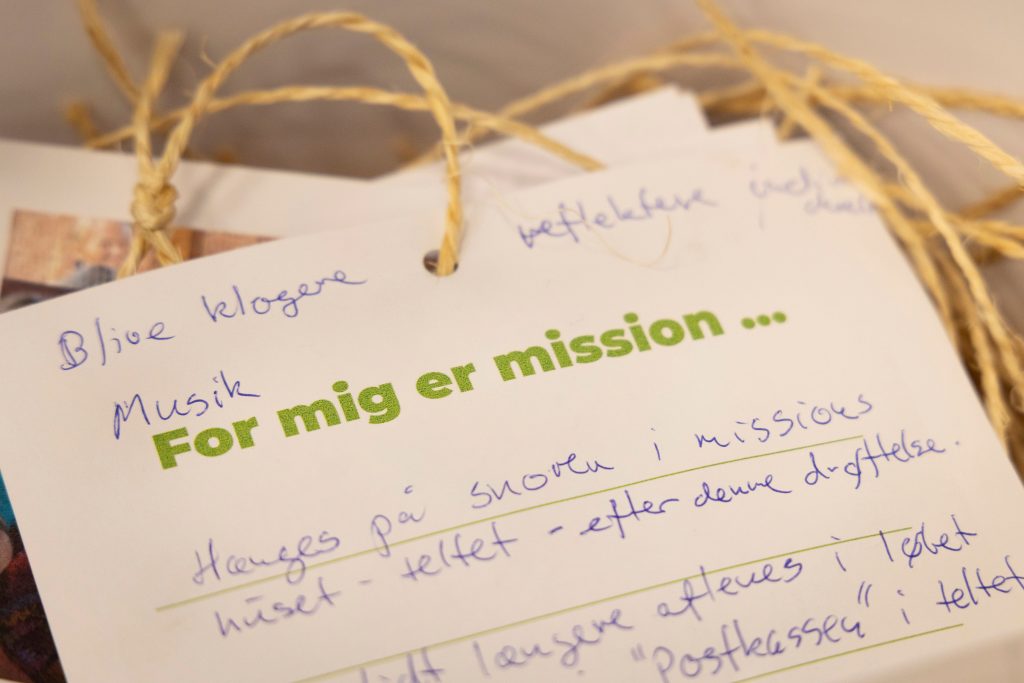 Blive klogere
reflektere
Musik
For mig er mission ...
Hænges på snoren i missions
huset - teltet - efter denne drøftelse.
længere aflenes i løbet
"Postkassen" i teltet